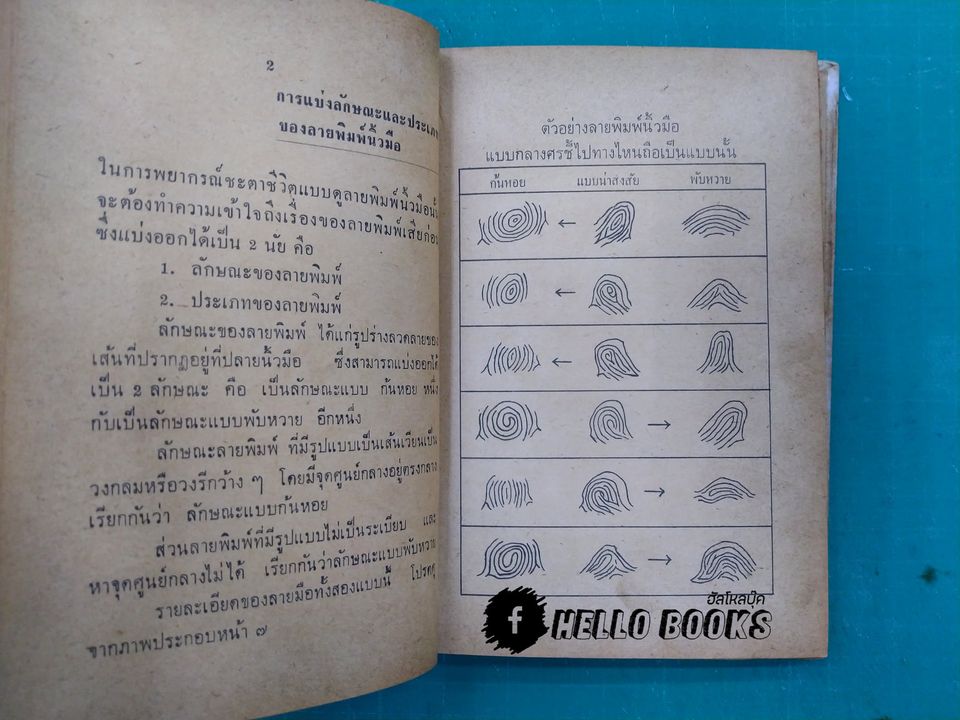 2
การแบ่งลักษณะและประเภท
ของลายพิมพ์นิ้วมือ
ในการพยากรณ์ชะตาชีวิตแบบดูลายพิมพ์นิ้วมือนั้น
จะต้องทำความเข้าใจถึงเรื่องของลายพิมพ์เสียก่อน
ซึ่งแบ่งออกได้เป็น 2 นัย คือ
1. ลักษณะของลายพิมพ์
2. ประเภทของลายพิมพ์
ลักษณะของลายพิมพ์ ได้แก่รูปร่างลวดลายของ
เส้นที่ปรากฏอยู่ที่ปลายนิ้วมือ ซึ่งสามารถแบ่งออกได้
เป็น 2 ลักษณะ คือ เป็นลักษณะแบบ ก้นหอย หนึ่ง
กับเป็นลักษณะแบบพับหวาย อีกหนึ่ง
ลักษณะลายพิมพ์ ที่มีรูปแบบเป็นเส้นเวียนเป็น
วงกลมหรือวงรีกว้าง ๆ โดยมีจุดศูนย์กลางอยู่ตรงกลาง
เรียกกันว่า ลักษณะแบบก้นหอย
ส่วนลายพิมพ์ที่มีรูปแบบไม่เป็นระเบียบ และ
หาจุดศูนย์กลางไม่ได้ เรียกกันว่าลักษณะแบบพับหวาย
รายละเอียดของลายมือทั้งสองแบบนี้ โปรดดู
จากภาพประกอบหน้า ๗
ตัวอย่างลายพิมพ์นิ้วมือ
แบบกลางศรชี้ไปทางไหนถือเป็นแบบนั้น
ก้นหอย แบบน่าสงสัย พับหวาย
ฮัลโหลบุ๊ค
f HELLO BOOKS